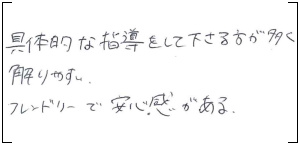 具体的な指導をして下さる方が多く
解りやすい.
フレンドリーで安心感がある.